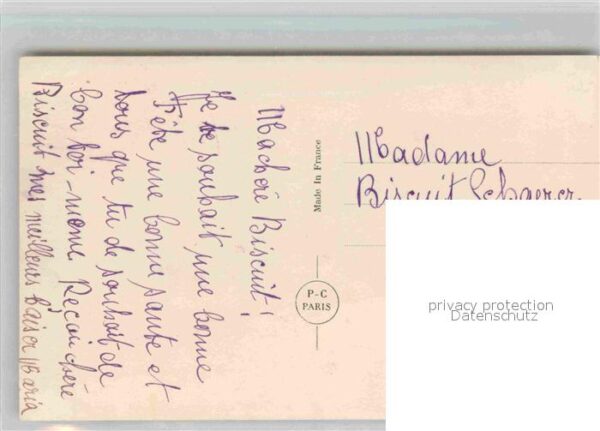 Machere Biscuit!
Je te souhait une bonne
Fête une bonne sante et
tous que tu de souhait de
ton toi-meme Recoi chère
Biscuit mes meilleurs baiser Maria
Made In France
P-C
PARIS
Madame
Biscuit Schaerer
privacy protection
Datenschutz